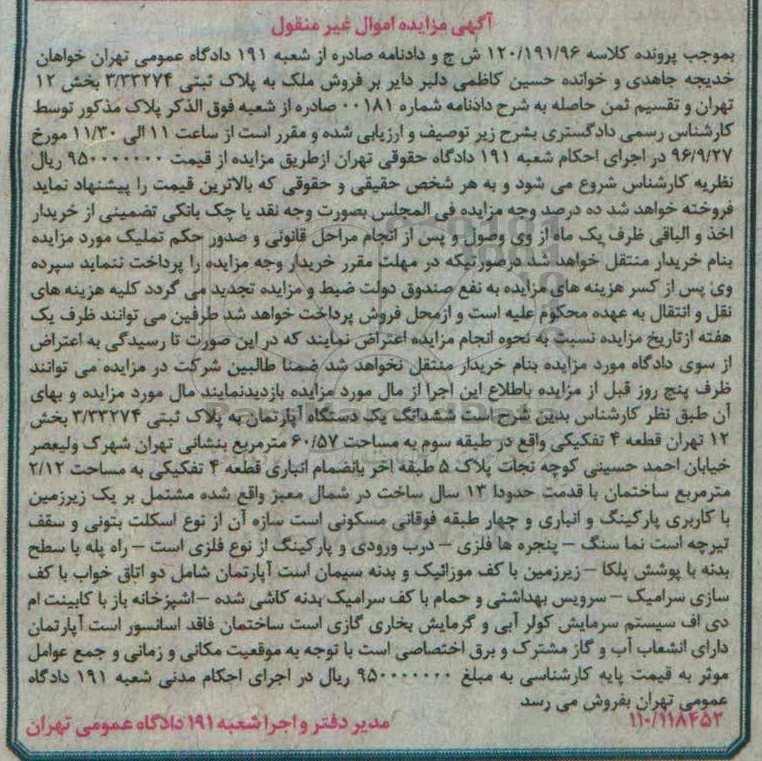 آگهی مزایده اموال غیر منقول
بموجب پرونده کلاسه ۱۲۰/۱۹۱/۹۶ ش ج و دادنامه صادره از شعبه ۱۹۱ دادگاه عمومی تهران خواهان
خدیجه جاهدی و خوانده حسین کاظمی دلبر دایر بر فروش ملک به پلاک ثبتی ۳/۳۳۲۷۴ بخش ۱۲
تهران و تقسیم ثمن حاصله به شرح دادنامه شماره ۰۰۱۸۱ صادره از شعبه فوق الذکر پلاک مذکور توسط
کارشناس رسمی دادگستری بشرح زیر توصیف و ارزیابی شده و مقرر است از ساعت ۱۱ الی ۱۱/۳۰ مورخ
۹۶/۹/۲۷ در اجرای احکام شعبه ۱۹۱ دادگاه حقوقی تهران ازطریق مزایده از قیمت ۹۵۰۰۰۰۰۰۰۰ ریال
نظریه کارشناس شروع می شود و به هر شخص حقیقی و حقوقی که بالاترین قیمت را پیشنهاد نماید
فروخته خواهد شد ده درصد وجه مزایده فی المجلس بصورت وجه نقد یا چک بانکی تضمینی از خریدار
اخذ و الباقی ظرف یک ماه از وی وصول و پس از انجام مراحل قانونی و صدور حکم تملیک مورد مزایده
بنام خریدار منتقل خواهد شد درصورتیکه در مهلت مقرر خریدار وجه مزایده را پرداخت ننماید سپرده
وی پس از کسر هزینه های مزایده به نفع صندوق دولت ضبط و مزایده تجدید می گردد کلیه هزینه های
نقل و انتقال به عهده محکوم علیه است و ازمحل فروش پرداخت خواهد شد طرفین می توانند ظرف یک
هفته ازتاریخ مزایده نسبت به نحوه انجام مزایده اعتراض نمایند که در این صورت تا رسیدگی به اعتراض
از سوی دادگاه مورد مزایده بنام خریدار منتقل نخواهد شد ضمنا طالبین شرکت در مزایده می توانند
ظرف پنج روز قبل از مزایده باطلاع این اجرا از مال مورد مزایده بازدیدنمایند مال مورد مزایده و بهای
آن طبق نظر کارشناس بدین شرح است ششدانگ یک دستگاه آپارتمان به پلاک ثبتی ۳/۳۳۲۷۴ بخش
۱۲ تهران قطعه ۴ تفکیکی واقع در طبقه سوم به مساحت ۶۰/۵۷ مترمربع بنشانی تهران شهرک ولیعصر
خیابان احمد حسینی کوچه نجات پلاک ۵ طبقه آخر بانضمام انباری قطعه ۴ تفکیکی به مساحت ۲/۱۲
مترمربع ساختمان با قدمت حدودا ۱۳ سال ساخت در شمال معبر واقع شده مشتمل بر یک زیرزمین
با کاربری پارکینگ و انباری و چهار طبقه فوقانی مسکونی است سازه آن از نوع اسکلت بتونی و سقف
تیرچه است نما سنگ – پنجره ها فلزی – درب ورودی و پارکینگ از نوع فلزی است – راه پله با سطح
بدنه با پوشش پلکا – زیرزمین با کف موزائیک و بدنه سیمان است آپارتمان شامل دو اتاق خواب با کف
سازی سرامیک – سرویس بهداشتی و حمام با کف سرامیک بدنه کاشی شده – اشپزخانه باز با کابینت ام
دی اف سیستم سرمایش کولر آبی و گرمایش بخاری گازی است ساختمان فاقد اسانسور است آپارتمان
دارای انشعاب آب و گاز مشترک و برق اختصاصی است با توجه به موقعیت مکانی و زمانی و جمع عوامل
موثر به قیمت پایه کارشناسی به مبلغ ۹۵۰۰۰۰۰۰۰۰ ریال در اجرای احکام مدنی شعبه ۱۹۱ دادگاه
عمومی تهران بفروش می رسد
۱۱۰/۱۱۸۴۵۳ مدیر دفتر و اجرا شعبه ۱۹۱ دادگاه عمومی تهران